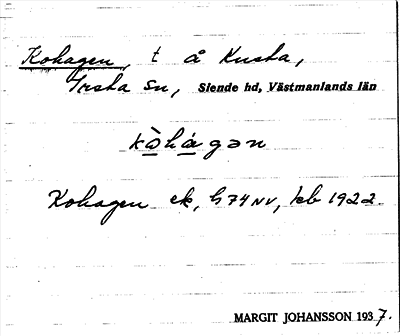 Kohagen, t å Kusta,
Irsta sn, Siende hd, Västmanlands län
kò̱há̱gən
Kohagen ek, h 74 NV, kb 1922.
MARGIT JOHANSSON 1937.